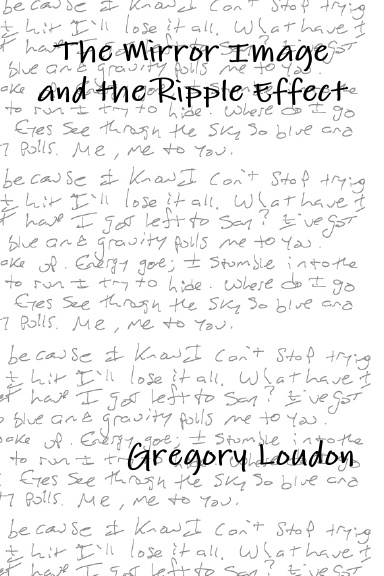 because I know I can't stop trying
hit I'll lose it all. What have I
The Mirror Image
have I got left to say? I've got
blue and gravity pulls me to you.
and the Ripple Effect
to run I try to hide. Where do I go
Eyes See through the Sky So blue and
Pulls. Me, me to You.
because I know I can't stop trying
hit I'll lose it all. What have I
have I got left to say? I've got
blue and gravity pulls me to you.
ake up. Energy goe; I stumble into the
to run I try to hide. Where do I go
Eyes See through the Sky So blue and
Pulls. Me, me to You.
because I know I can't stop trying
hit I'll lose it all. What have I
have I got left to say? I've got
blue and gravity pulls me to you.
ake up. Energy goe; I stumble into the
Gregory Loudon
to run I
Eyes See through the Sky So blue and
Pulls. Me, me to You.
because I know I can't stop trying
hit I'll lose it all. What have I
have I got left to say? I've got